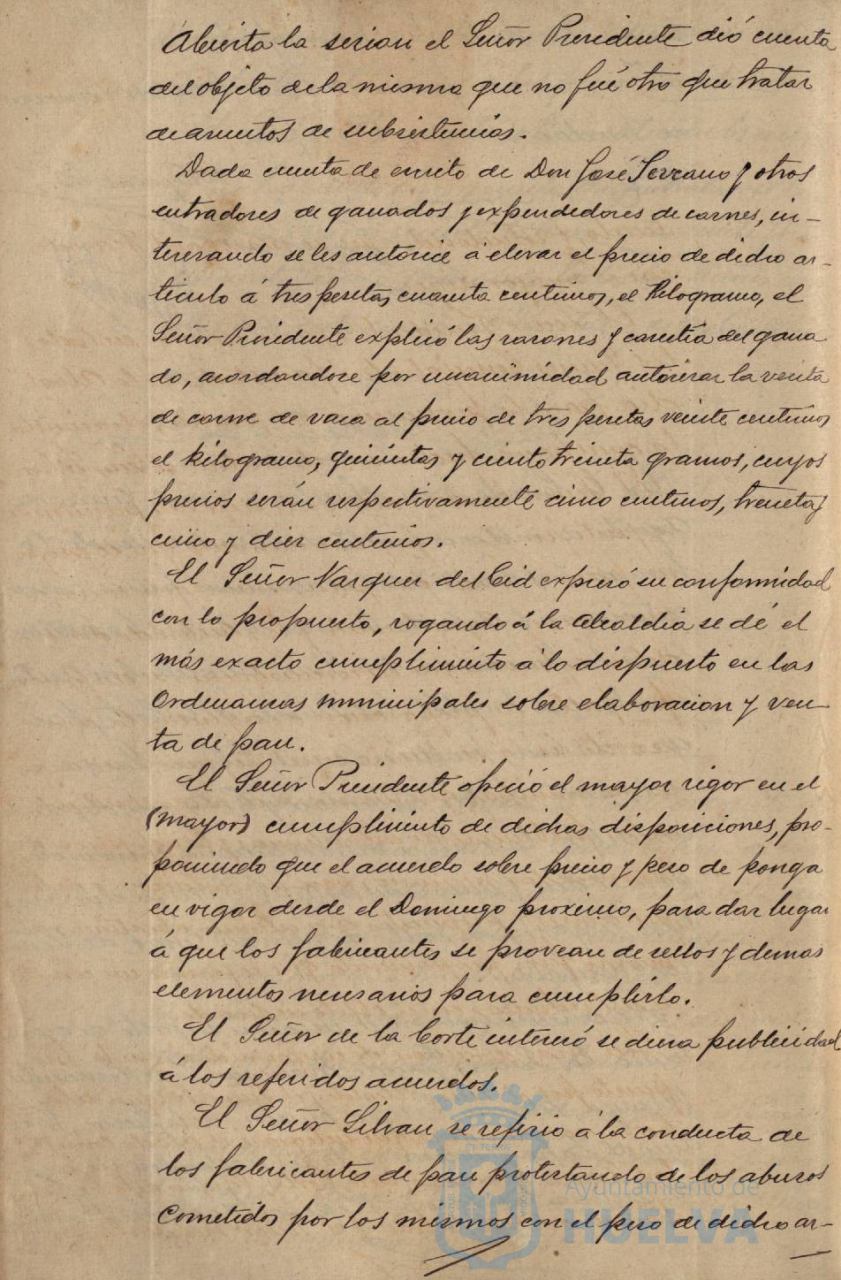 Abierta la sesion el Señor Presidente dió cuenta
del objeto de la misma que no fué otro que tratar
de asuntos de subsistencias.
Dada cuenta de escrito de Don José Serrano y otros
entradores de ganados y expendedores de carnes, in-
teresando se les autorice á elevar el precio de dicho ar-
ticulo á tres pesetas, cuarenta centimos, el Kilogramo, el
Señor Presidente explicó las razones y carestia del gana
do, acordandose por unanimidad autorizar la venta
de carne de vaca al precio de tres pesetas veinte centimos
el kilogramo, quinientos y ciento treinta gramos, cuyos
precios serán respectivamente cinco centimos, treinta y
cinco y diez centimos.
El Señor Vazquez del Cid expresó su conformidad
con lo propuesto, rogando á la Alcaldia se dé el
más exacto cumplimiento á lo dispuesto en las
Ordenanzas municipales sobre elaboracion y ven-
ta de pan.
El Señor Presidente ofreció el mayor rigor en el
(mayor) cumplimiento de dichas disposiciones, pro-
poniendo que el acuerdo sobre precio y peso de ponga
en vigor desde el Domingo proximo, para dar lugar
á que los fabricantes se provean de sellos y demas
elementos necesarios para cumplirlo.
El Señor de la Corte interesó se diera publicidad
á los referidos acuerdos.
El Señor Silvan se refirio á la conducta de
los fabricantes de pan protestando de los abusos
cometidos por los mismos con el peso de dicho ar-
Ayuntamiento de
HUELVA